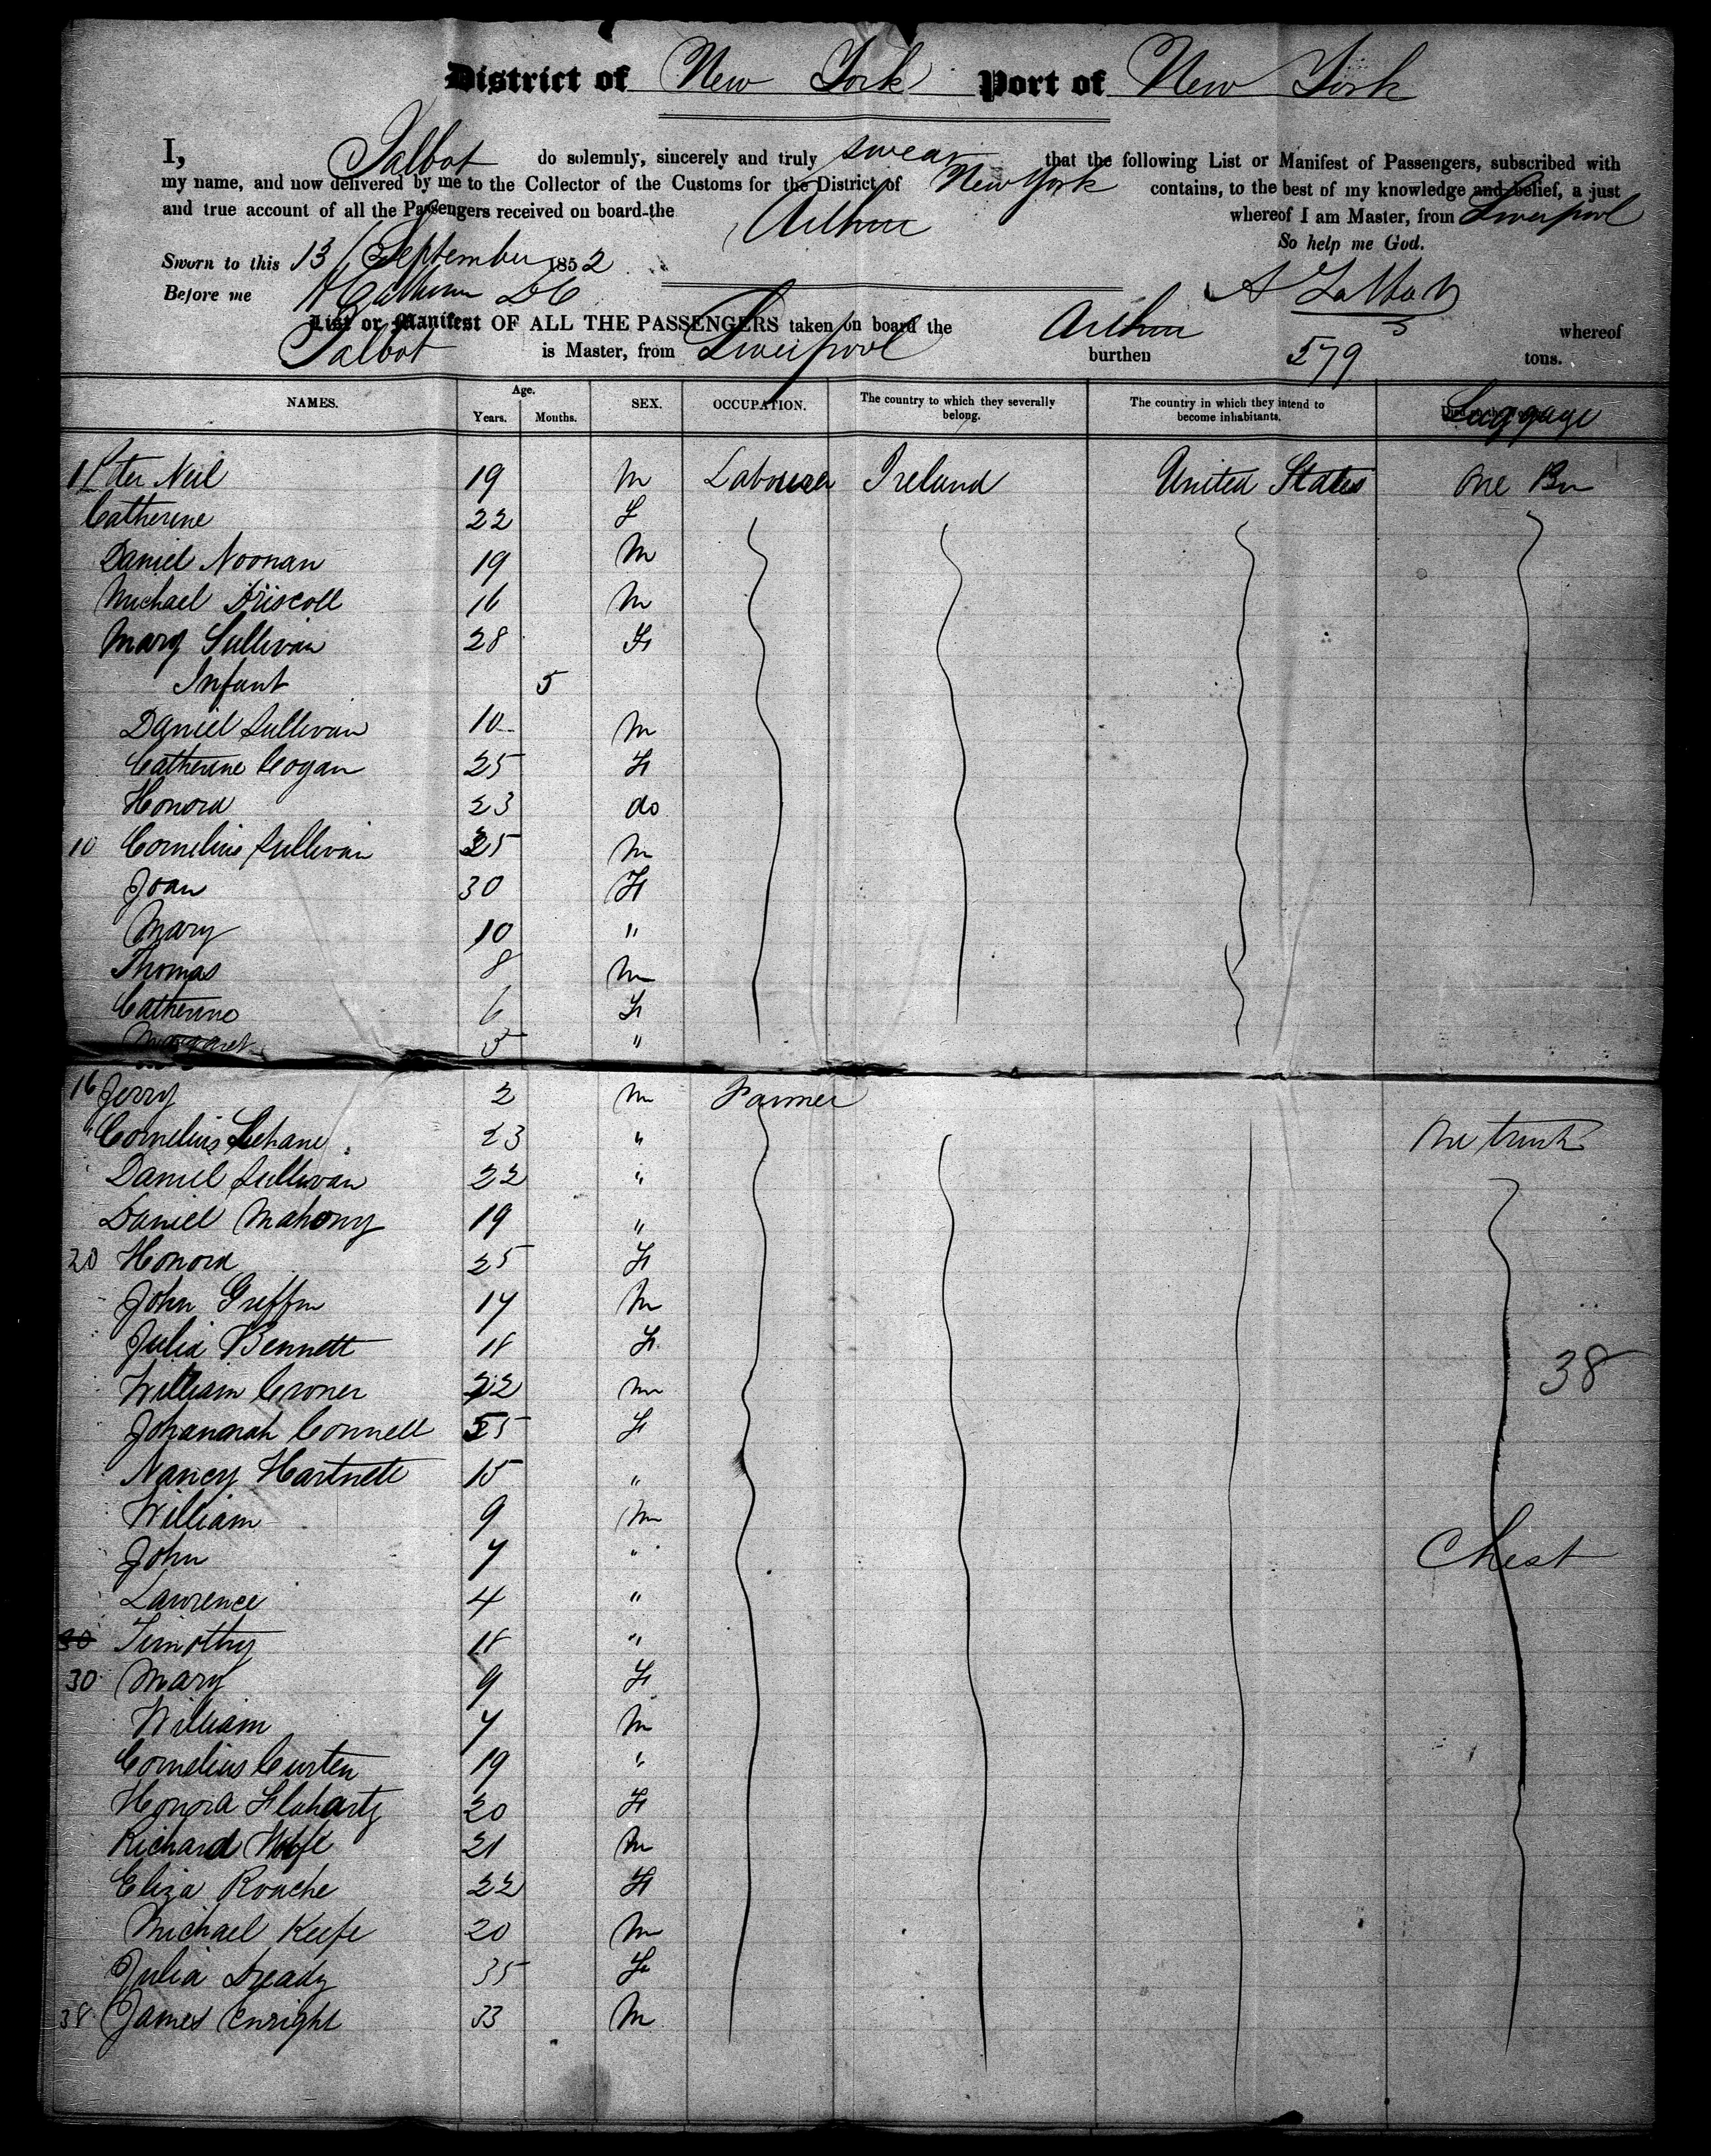 District of New York Port of New York
I, Talbot do solemnly, sincerely and truly swear that the following List or Manifest of Passengers, subscribed with
my name, and now delivered by me to the Collector of the Customs for the District of New York contains, to the best of my knowledge and belief, a just
and true account of all the Passengers received on board the Arthur whereof I am Master, from Liverpool
So help me God.
Sworn to this 13 September 1852
Before me DC A Talbot
List or Manifest OF ALL THE PASSENGERS taken on board the Arthur whereof
Talbot is Master, from Liverpool burthen 579 tons.
NAMES. Age. Years. Months. SEX. OCCUPATION. The country to which they severally belong. The country in which they intend to become inhabitants. Luggage
1 Peter Neil 19 M Labourer Ireland United States One
Catherine 22 F
Daniel Noonan 19 M
Michael Driscoll 16 M
Mary Sullivan 28 F
Infant 5
Daniel Sullivan 10 M
Catherine Cogan 25 F
Honora 23 do
10 Cornelius Sullivan 35 M
Joan 30 F
Mary 10 "
Thomas 8 M
Catherine 6 F
Margaret 5 "
16 Jerry 2 M Farmer
Cornelius Lehane 23 " One trunk
Daniel Sullivan 22 "
Daniel Mahony 19 "
20 Honora 25 F
John Griffin 17 M
Julia Bennett 18 F
William Croner 22 M 38
Johannah Connell 55 F
Nancy Hartnett 15 "
William 9 M
John 7 " Chest
Lawrence 4 "
30 Timothy 18 "
30 Mary 9 F
William 7 M
Cornelius Curten 19 "
Honora Flaharty 20 F
Richard Wolfe 21 M
Eliza Roache 22 F
Michael Keefe 20 M
Julia Dready 35 F
38 James Enright 33 M